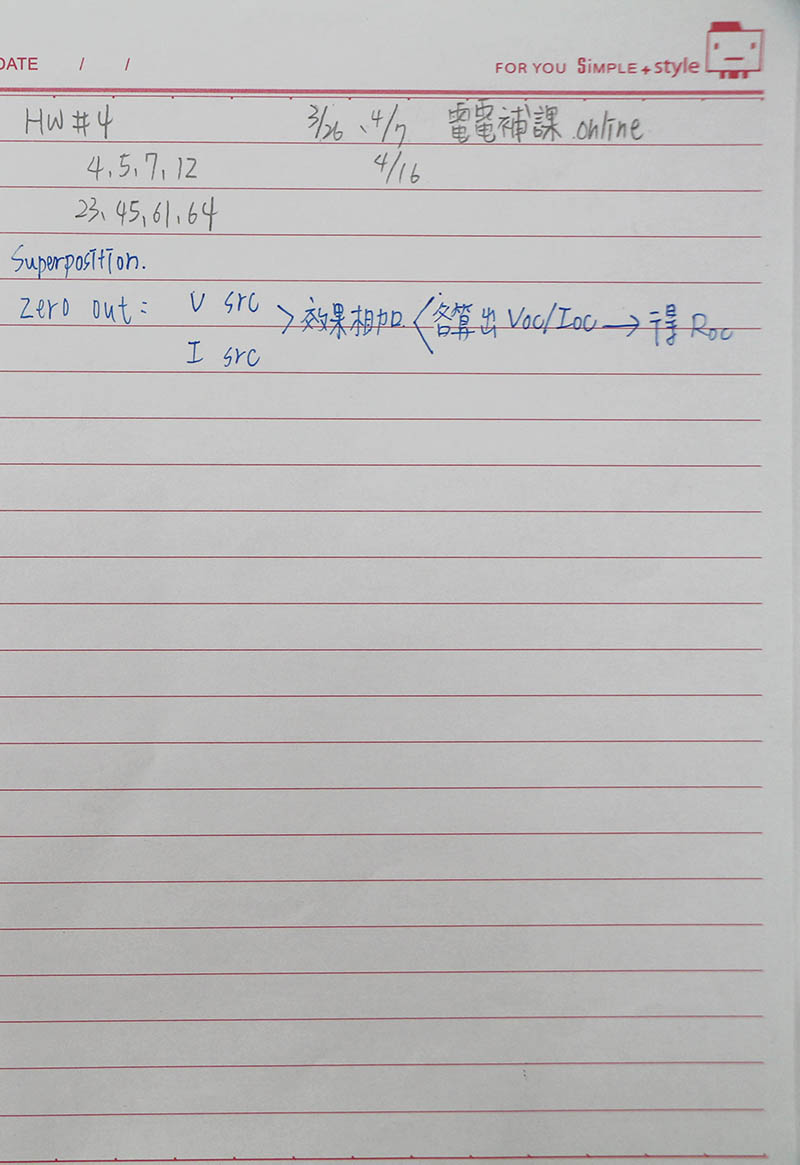 DATE / /
FOR YOU SiMPLE + style
HW #4 3/26、4/7 電電補課 online
4、5、7、12 4/16
23、45、61、64
Superposition.
zero out: V src > 效果相加. < 各算出 Voc/Ioc → 得 Roc
I src